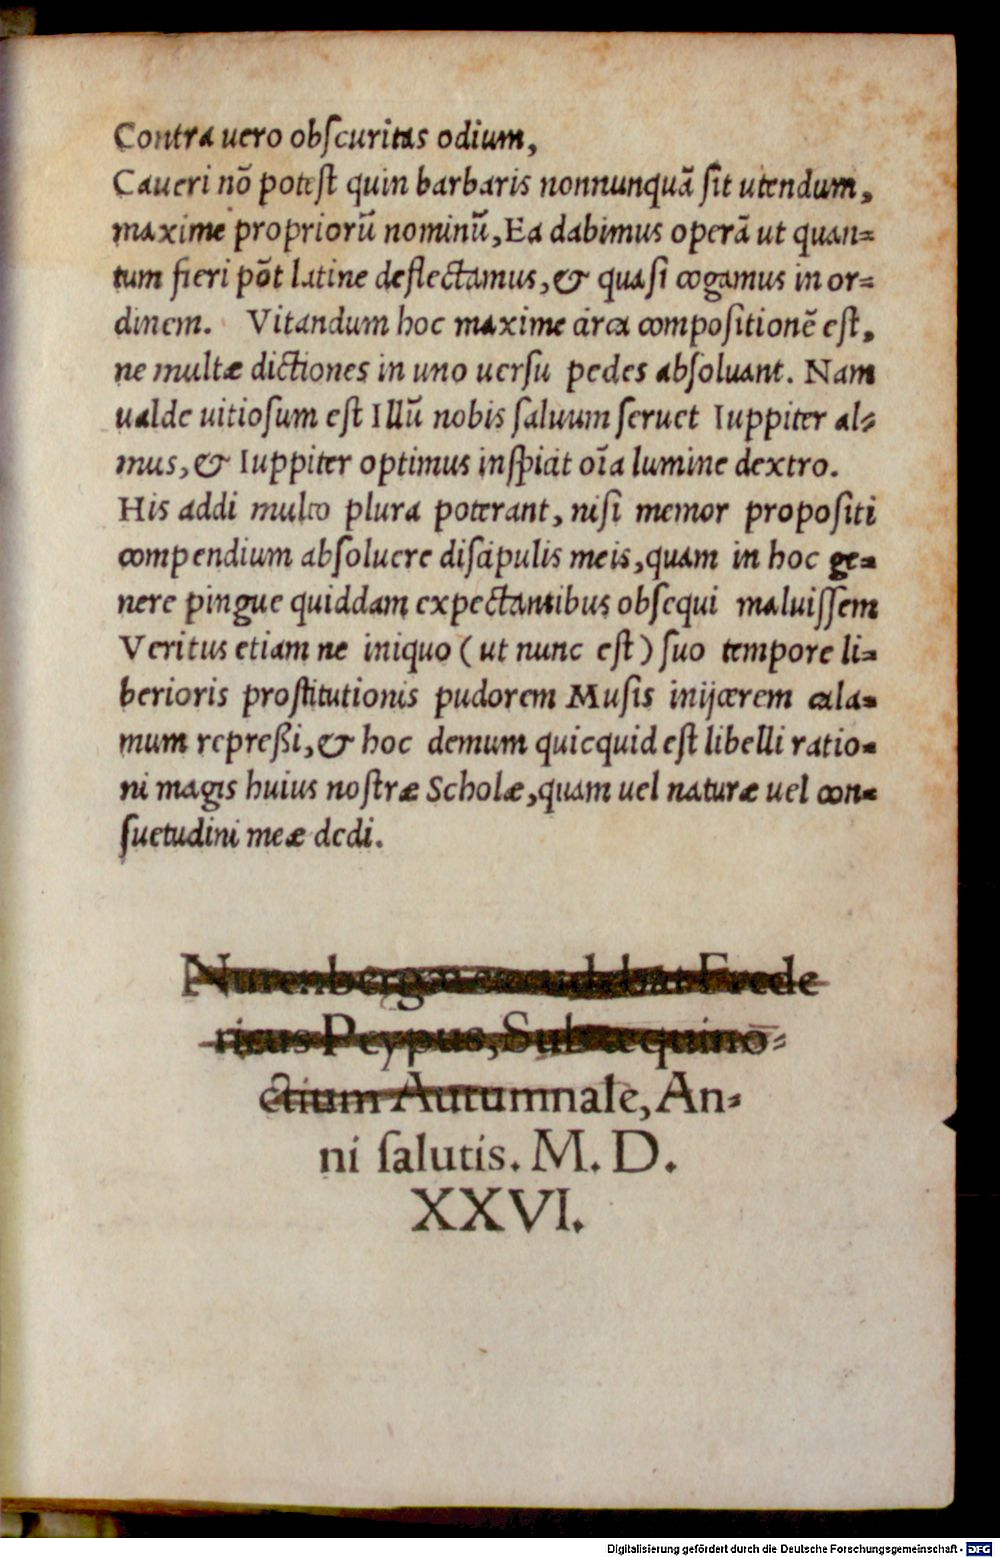 Contra uero obſcuritas odium,
Caueri nō poteſt quin barbaris nonnunquā ſit utendum,
maxime propriorū nominū, Ea dabimus operā ut quan-
tum fieri pōt latine deflectamus, & quaſi cogamus in or-
dinem. Vitandum hoc maxime circa compoſitionē eſt,
ne multæ dictiones in uno uerſu pedes abſoluant. Nam
ualde uitioſum eſt Illū nobis ſaluum ſeruet Iuppiter al-
mus, & Iuppiter optimus inſpiciat oīa lumine dextro.
His addi multo plura poterant, niſi memor propoſiti
compendium abſoluere diſcipulis meis, quam in hoc ge-
nere pingue quiddam expectantibus obſequi maluiſſem
Veritus etiam ne iniquo (ut nunc eſt) ſuo tempore li-
berioris proſtitutionis pudorem Muſis inijcerem cala-
mum repreßi, & hoc demum quicquid eſt libelli ratio-
ni magis huius noſtræ Scholæ, quam uel naturæ uel con-
ſuetudini meæ dedi.
Nurenbergae excudebat Frede
ricus Peypus, Sub æquino-
ctium Autumnale, An-
ni ſalutis. M. D.
XXVI.
Digitalisierung gefördert durch die Deutsche Forschungsgemeinschaft - DFG